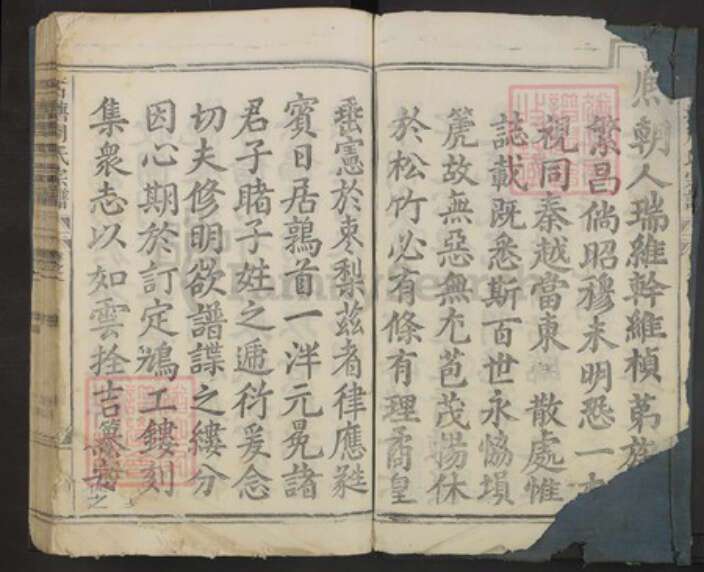 朝人瑞維幹維楨苐族
繁昌倘昭穆未明恐一
視同秦越當東 散處惟
誌載既悉斯百世永恊塤
箎故無惡無尤苞茂揚休
於松竹必有條有理矞皇
憲於東梨茲者律應蕤
賓日居鶉首一泮元冕諸
君子睹子姓之逓衍爰念
切夫修明欲譜諜之縷分
因心期於訂定鳩工鏤刻
集衆志以如雲拴吉
之
氏宗譜